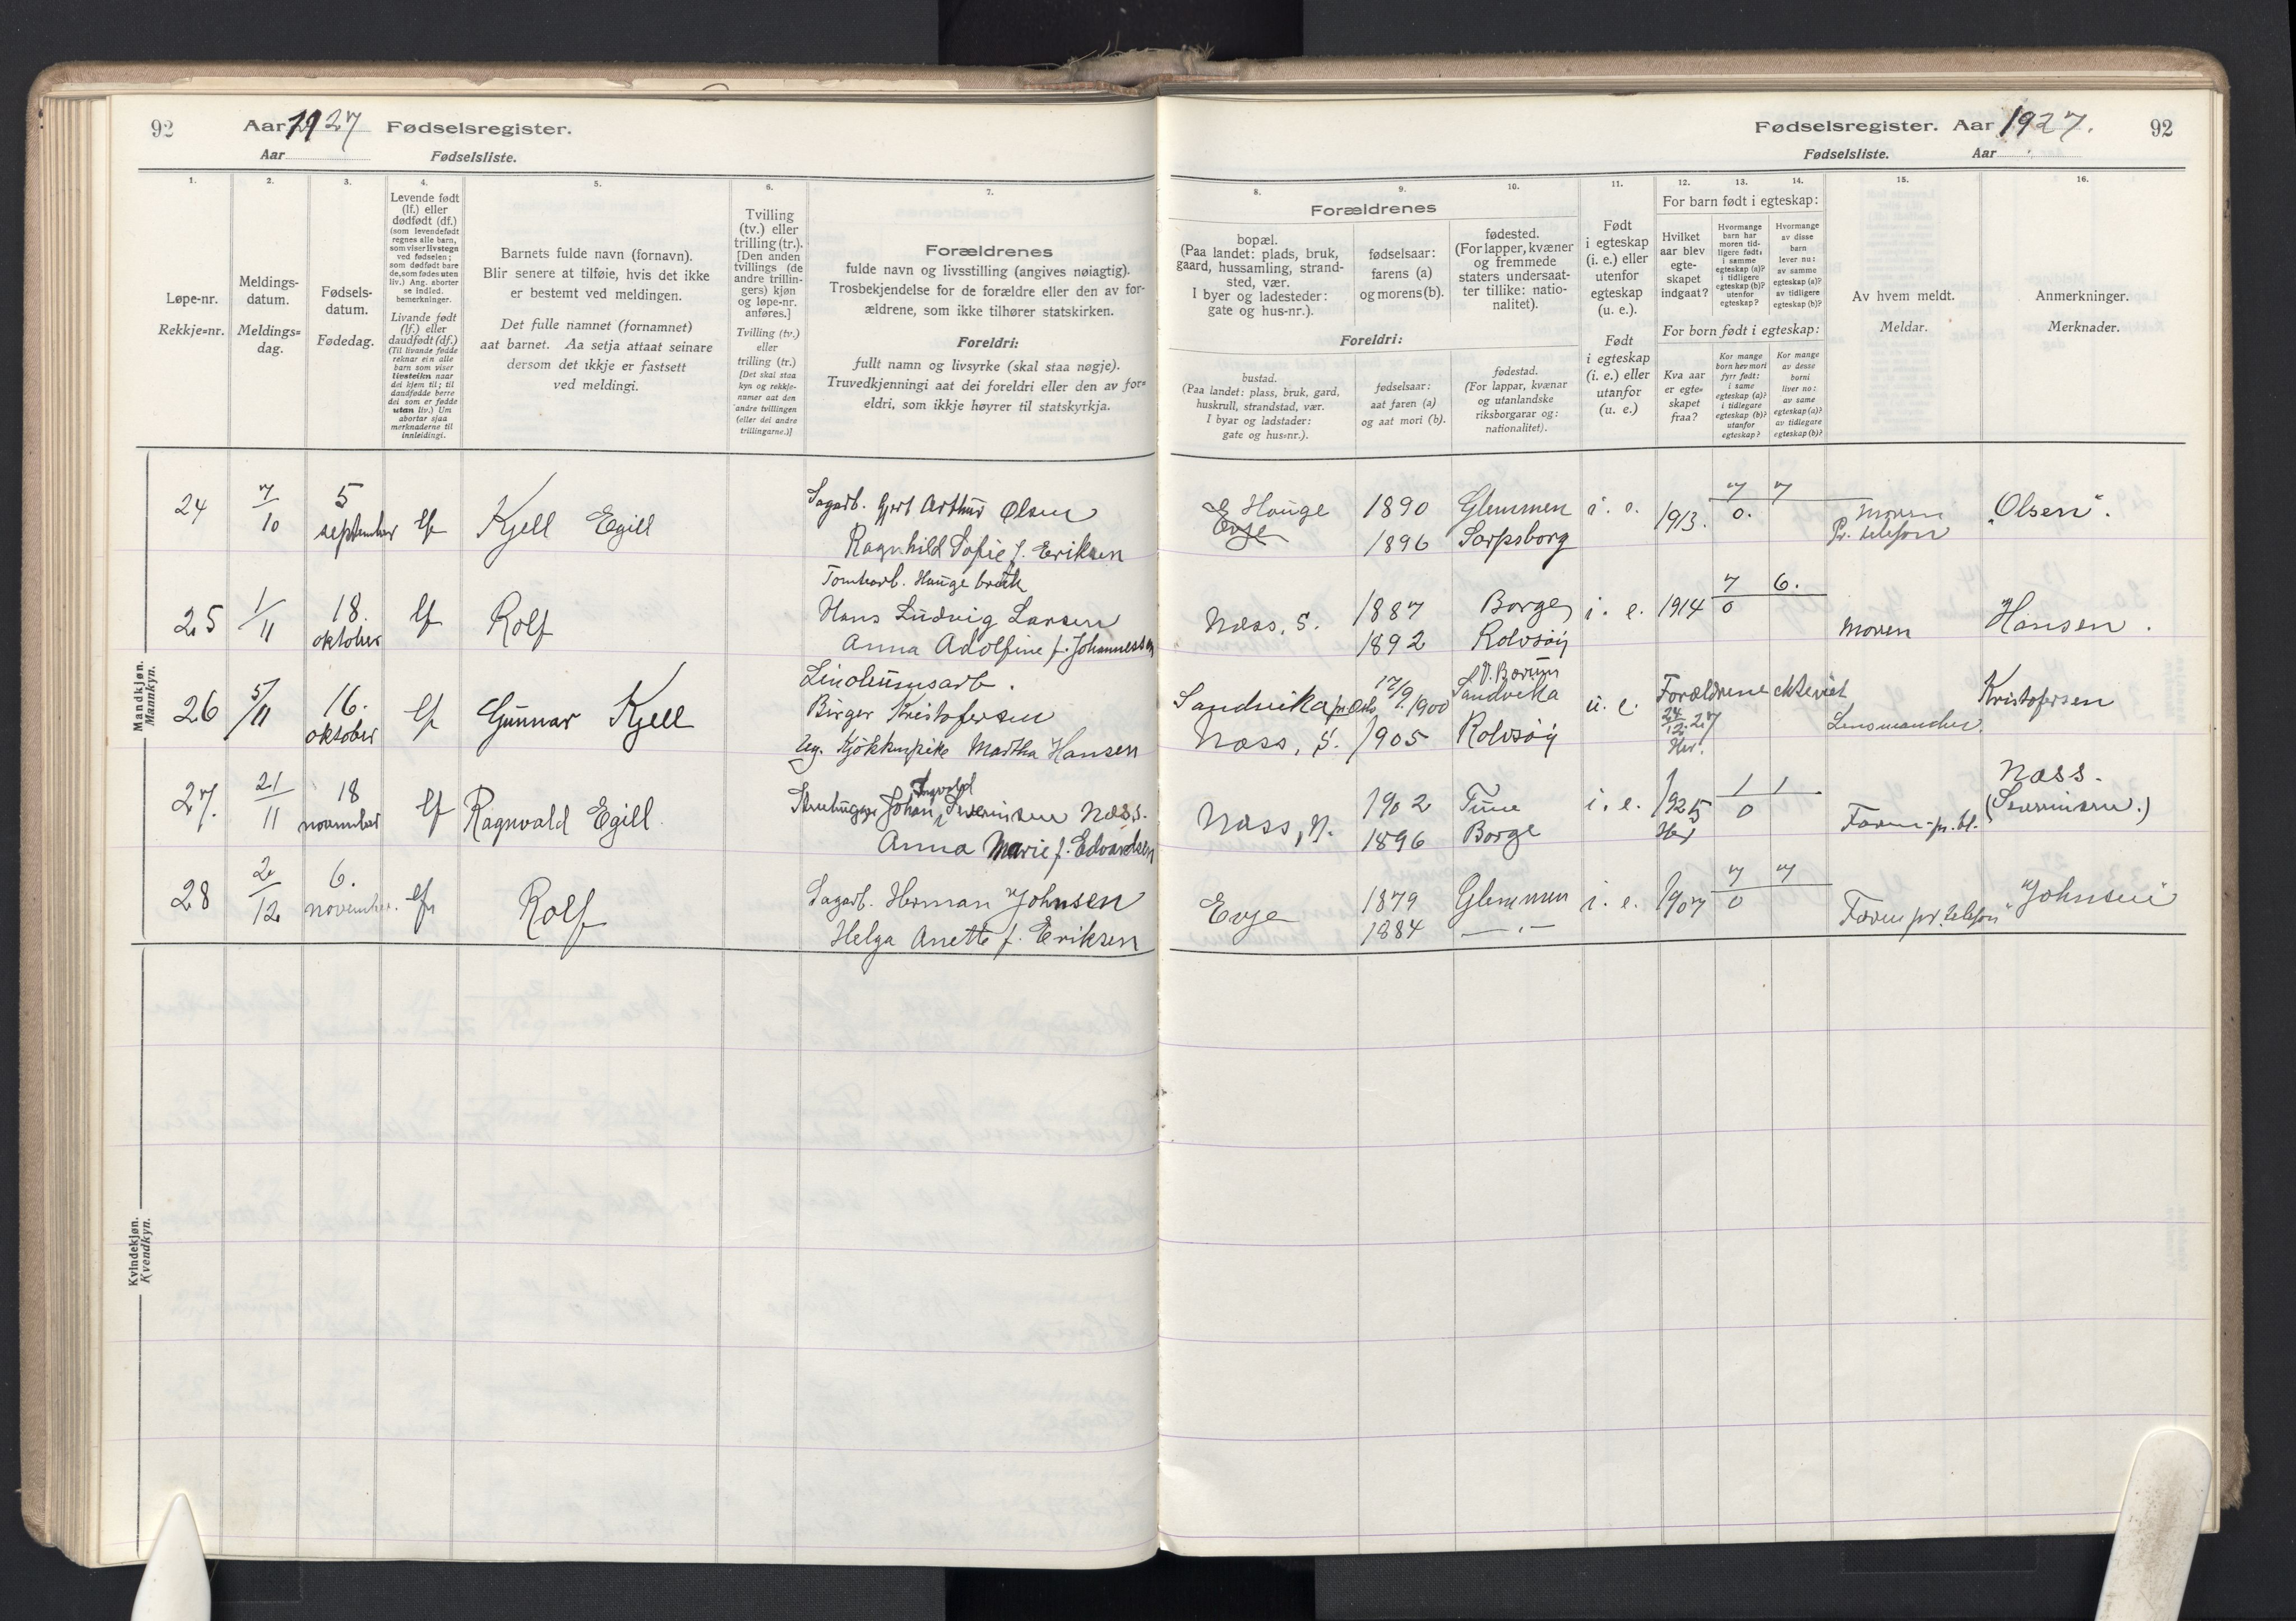 92 Aar 1927 Fødselsregister.
Aar Fødselsliste.
Fødselsregister. Aar 1927. 92
Fødselsliste. Aar
1. 2. 3. 4. 5. 6. 7.
Løpe-nr.
Rekkje-nr.
Meldings-
datum.
Meldings-
dag.
Fødsels-
datum.
Fødedag.
Levende født
(lf.) eller
dødfødt (df.)
(som levendefødt
regnes alle barn,
som viser livstegn
ved fødselen;
som dødfødt bare
de, som fødes uten
liv.) Ang. aborter
se indled.
bemerkninger.
Livande født
(lf.) eller
daudfødt (df.)
(Til livande fødde
reknar ein alle
barn som viser
livsteikn naar
dei kjem til; til
daudfødde berre
dei som er fødde
utan liv.) Um
abortar sjaa
merknaderne til
innleidingi.
Barnets fulde navn (fornavn).
Blir senere at tilføie, hvis det ikke
er bestemt ved meldingen.
Det fulle namnet (fornamnet)
aat barnet. Aa setja attaat seinare
dersom det ikkje er fastsett
ved meldingi.
Tvilling
(tv.) eller
trilling (tr.).
[Den anden
tvillings (de
andre trillin-
gers) kjøn
og løpe-nr.
anføres.]
Tvilling (tv.)
eller
trilling (tr.)
[Det skal staa
kyn og rekkje-
numer aat den
andre tvillingen
(eller dei andre
trillingarne.)]
Forældrenes
fulde navn og livsstilling (angives nøiagtig).
Trosbekjendelse for de forældre eller den av for-
ældrene, som ikke tilhører statskirken.
Foreldri:
fullt namn og livsyrke (skal staa nøgje).
Truvedkjenningi aat dei foreldri eller den av for-
eldri, som ikkje høyrer til statskyrkja.
8. 9. 10. 11. 12. 13. 14. 15. 16.
Forældrenes
bopæl.
(Paa landet: plads, bruk,
gaard, hussamling, strand-
sted, vær.
I byer og ladesteder:
gate og hus-nr.).
fødselsaar:
farens (a)
og morens (b).
fødested.
(For lapper, kvæner
og fremmede
staters undersaat-
ter tillike: natio-
nalitet).
Foreldri:
bustad.
(Paa landet: plass, bruk, gard,
huskrull, strandstad, vær.
I byar og ladstader:
gate og hus-nr.).
fødselsaar:
aat faren (a)
og aat mori (b).
fødestad.
(For lappar, kvænar
og utanlandske
riksborgarar og:
nationalitet).
Født
i egteskap
(i. e.) eller
utenfor
egteskap
(u. e.).
Født
i egteskap
(i. e.) eller
utanfor
(u. e.)
For barn født i egteskap:
Hvilket
aar blev
egte-
skapet
indgaat?
Hvormange
barn har
moren tid-
ligere født:
i samme
egteskap (a)?
i tidligere
egteskap (b)?
utenfor
egteskap?
Hvormange
av disse
barn
lever nu:
av samme
egteskap (a)?
av tidligere
egteskap (b)?
For born født i egteskap:
Kva aar
er egte-
skapet
fraa?
Kor mange
born hev mori
fyrr født:
i same
egteskap (a)?
i tidlegare
egteskap (b)?
utanfor
egteskap?
Kor mange
av desse
borni
liver no:
av same
egteskap (a)?
av tidlegare
egteskap (b)?
Av hvem meldt.
Meldar.
Anmerkninger.
Merknader.
Mandkjøn.
Mannkyn.
24 7/10 5 september lf Kjell Egill
Sagarb. Gjert Arthur Olsen
Ragnhild Sofie f. Eriksen
Hauge
Evje
1890 Glemmen
1896 Sarpsborg
i. e. 1913. 7 7
0.
moren
Pr. telefon
"Olsen".
25 1/11 18. oktober lf Rolf
Tomtearb. Hauge bruk
Hans Ludvig Larsen
Anna Adolfine f. Johannessen
Næss, S.
1887 Borge
1892 Rolvsøy
i. e. 1914 7 6.
0
moren
Hansen.
26 5/11 16. oktober lf Gunnar Kjell
Linoleumsarb.
Birger Kristofersen
Ug. Kjøkkenpike Martha Hansen
Sandvika pr. Oslo
Næss, S.
17/9. 1900 V. Bærum
Sandvika
1905 Rolvsøy
u. e. Forældrene ekteviet
24/12.27
Her.
Lensmanden.
Kristofersen
27. 21/11 18 november lf Ragnvald Egill.
Ingvald
Johan Severinsen Næss.
Anna Marie f. Edvardsen
Næss, N.
1902 Tune
1896 Borge
i. e. 1925 1 1
Her 0
Faren pr. tel.
Næss.
(Severinsen.)
28 2/12 6. november. lf Rolf
Sagarb. Herman Johnsen
Helga Anette f. Eriksen
Evje
1879 Glemmen
1884 —"—
i. e. 1907 7 7
0
Faren pr. telefon
"Johnsen"
Kvindekjøn.
Kvendkyn.